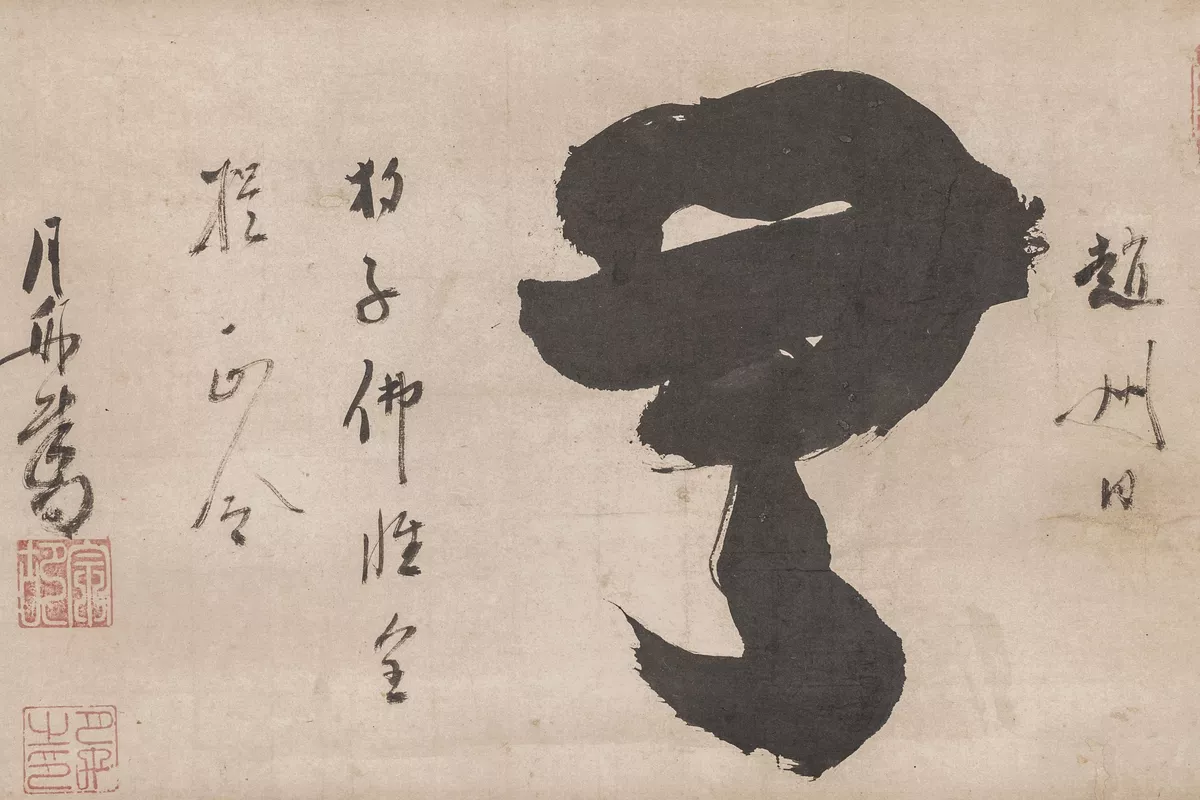 趙州曰
無
狗子佛性全
提正令
月舟書